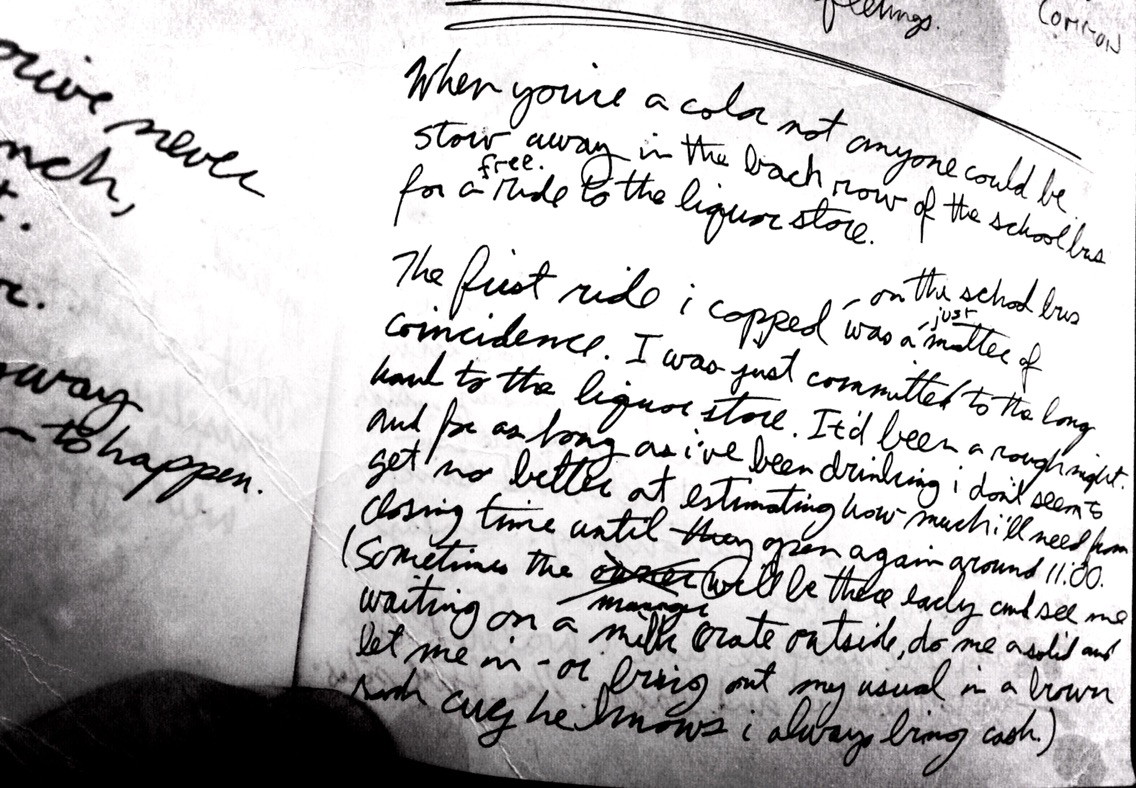 never
to happen.
feelings.
COMMON
When you're a color not anyone could be
stow away in the back row of the school bus
free.
for a ride to the liquor store.
The first ride i copped on the school bus
was a just matter of
coincidence. I was just committed to the long
haul to the liquor store. It'd been a rough night.
and for as long as i've been drinking i don't seem to
get no better at estimating how much i'll need from
closing time until they open again around 11:00.
(Sometimes the will be there early and see me
manager
waiting on a milk crate outside, do me a solid and
let me in - or bring out my usual in a brown
he knows i always bring cash.)